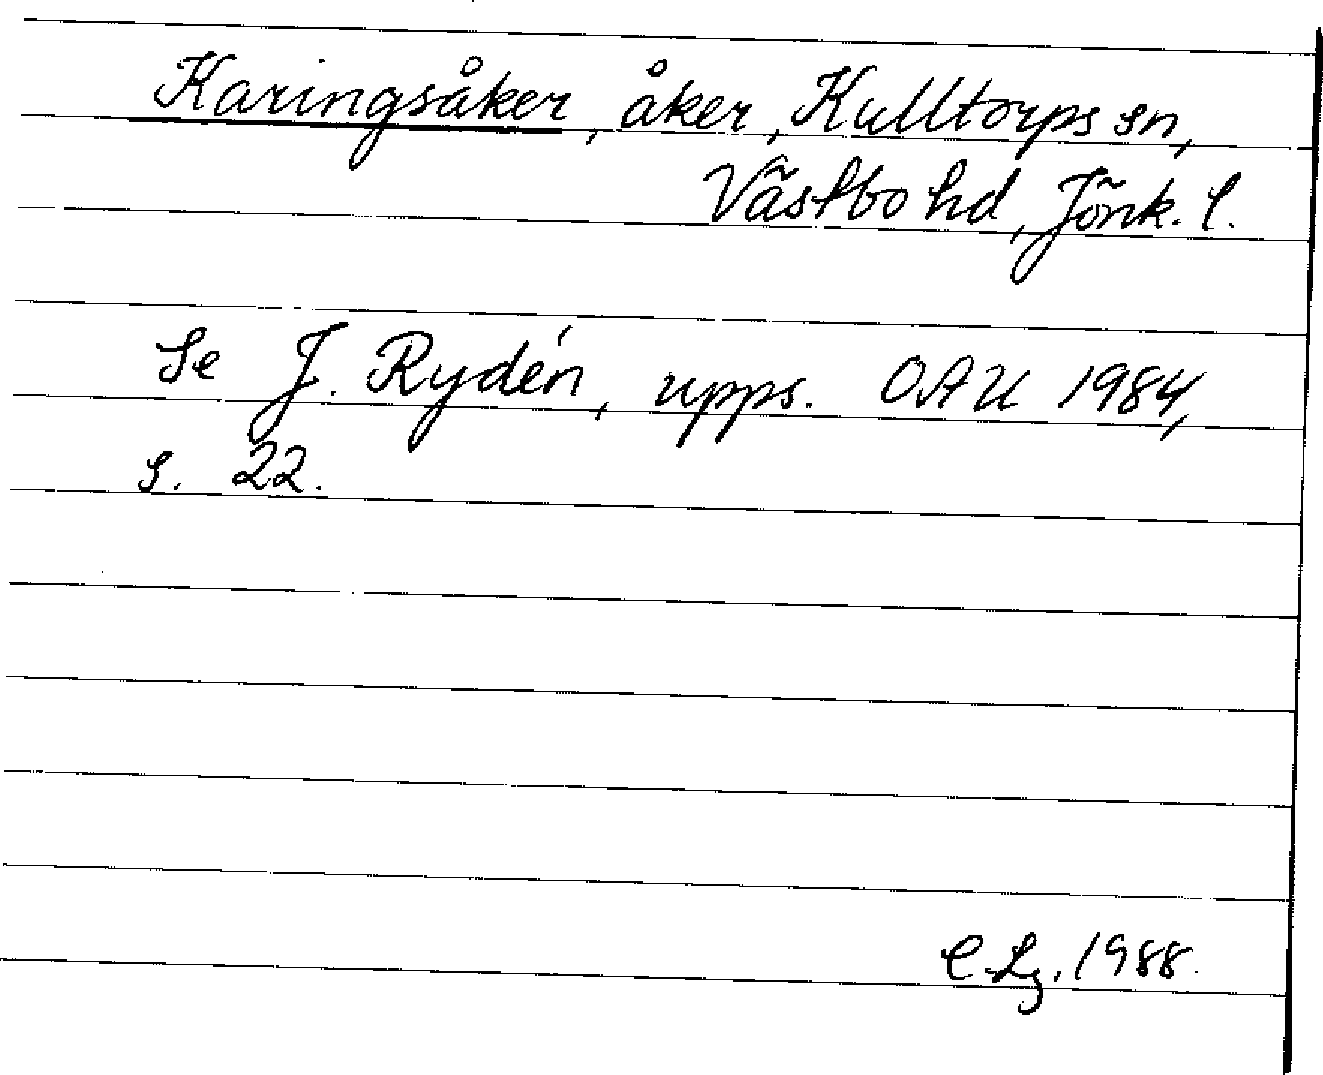 Karingsåker, åker, Kulltorps sn,
Västbo hd, Jönk. l.
Se J. Rydén, upps. OAU 1984,
s. 22.
C.Lg. 1988.